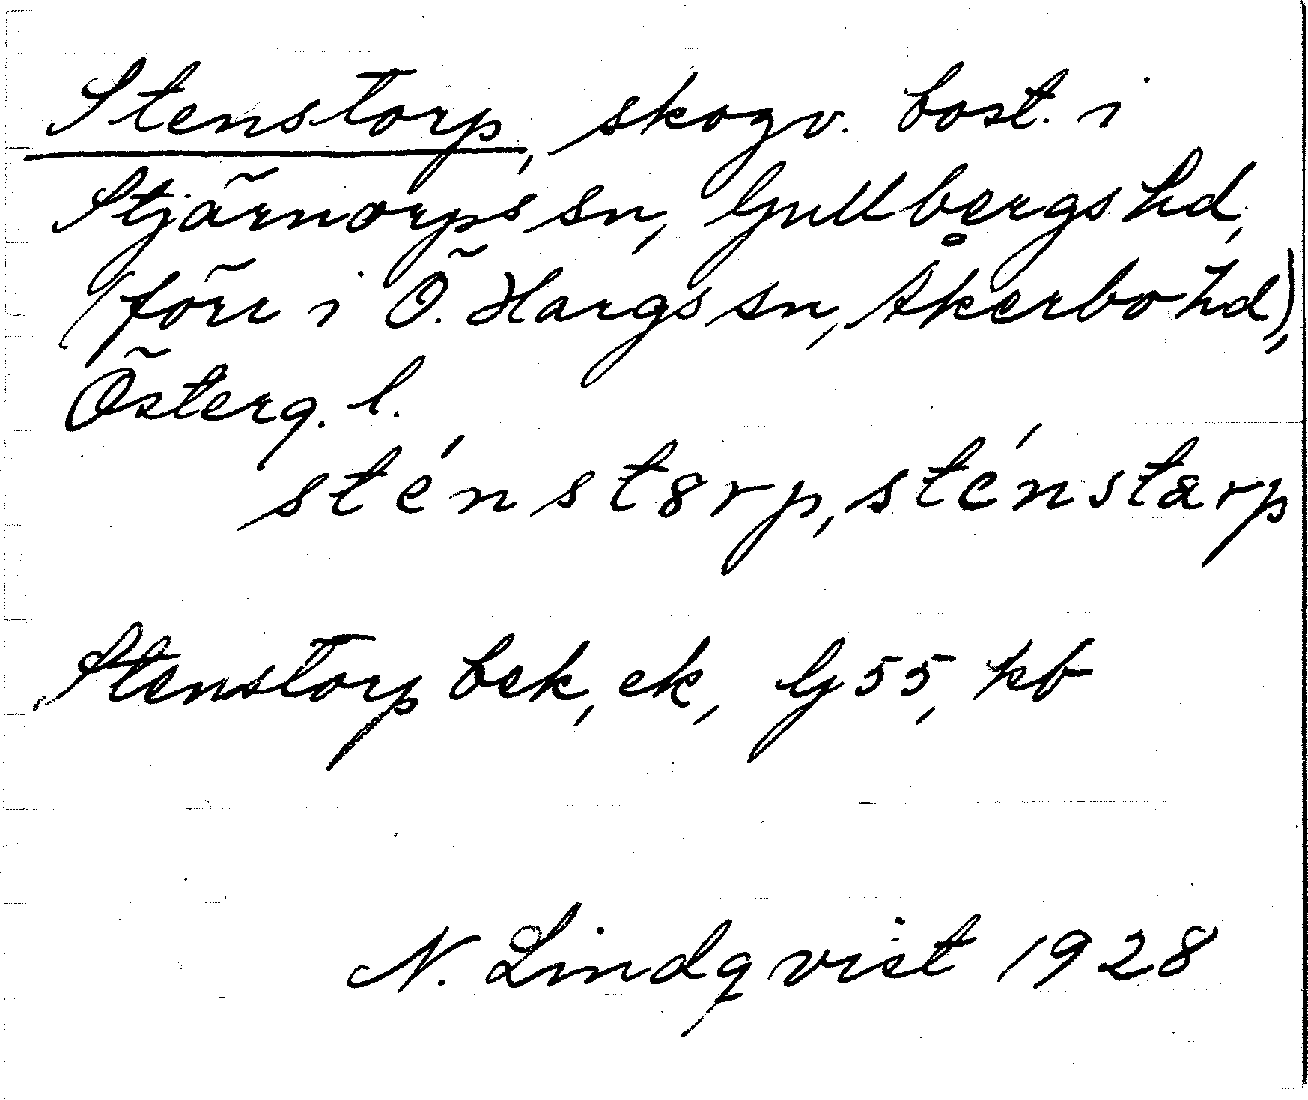 Stenstorp, skogv. bost. i
Stjärnorps sn, Gullbergs hd,
(förr i Ö. Hargs sn, Åkerbo hd),
Österg. l.
sténstȣrp, sténstarp
Stenstorp bek, ek, G 55, kb
N. Lindqvist 1928